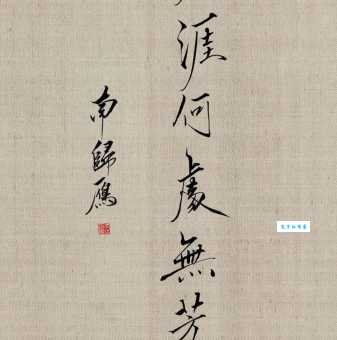 涯何處無芳
南歸鴈